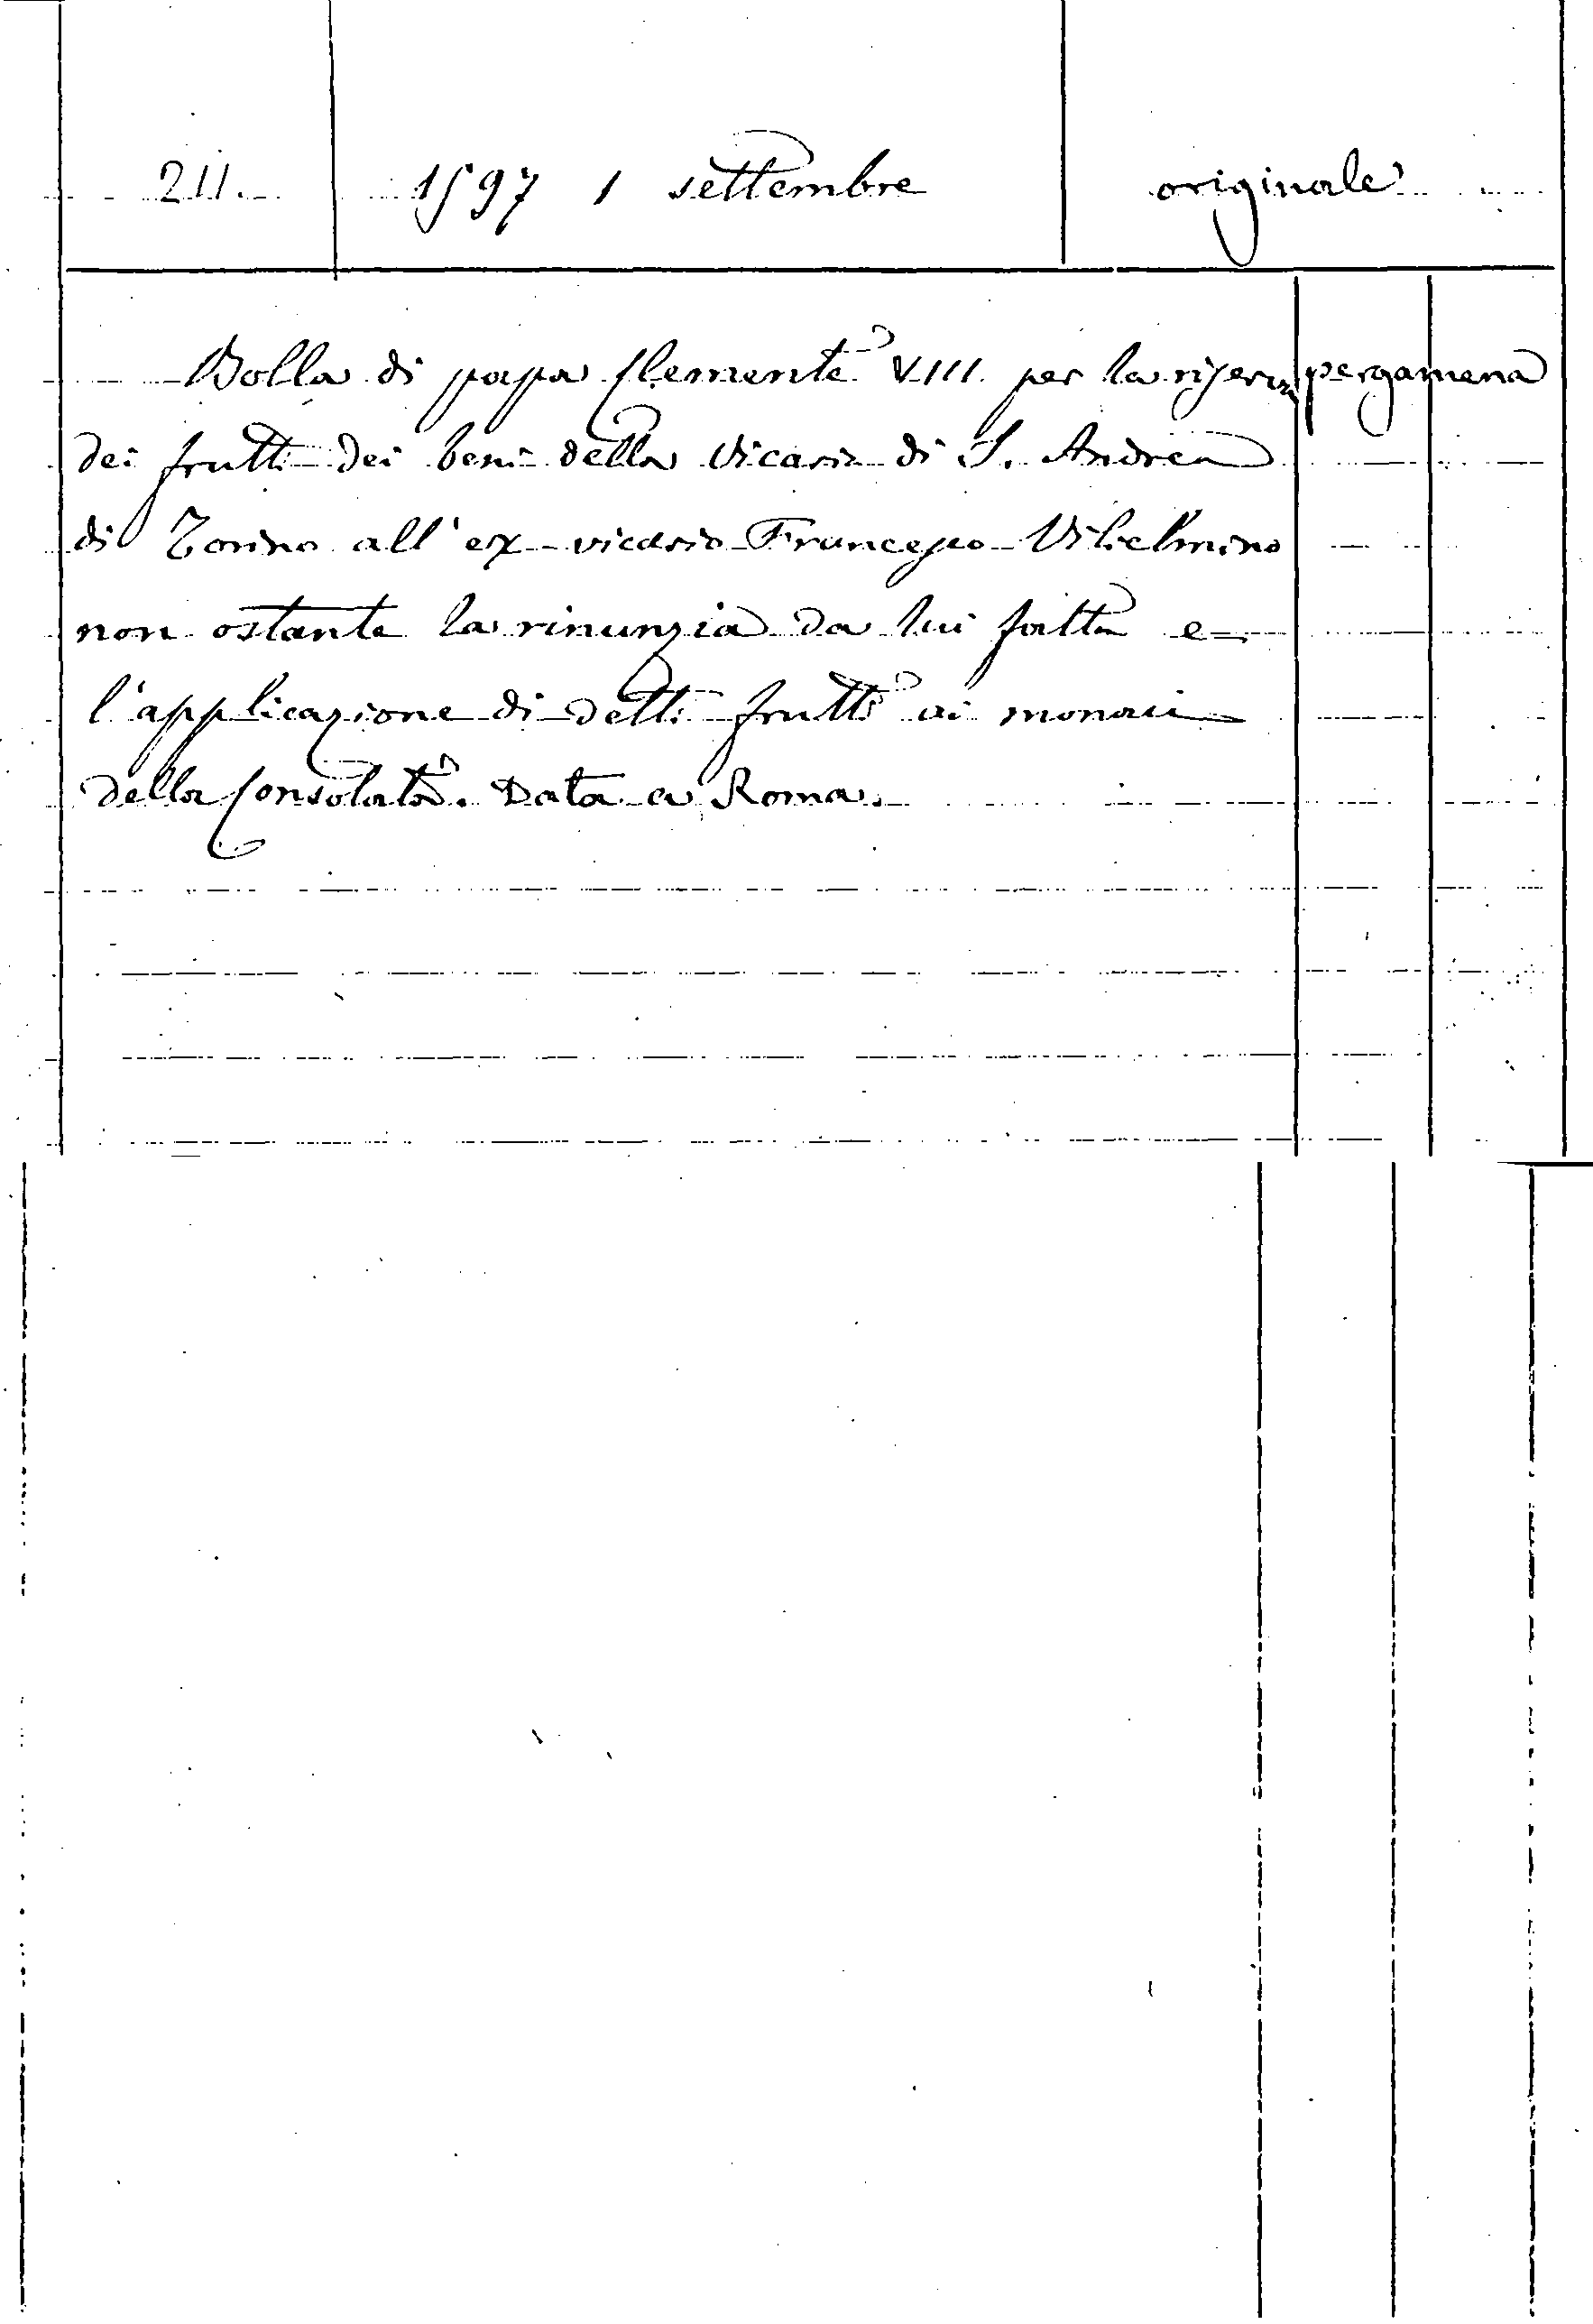 211. 1597 1 settembre originale
Bolla di papa Clemente VIII. per la riserva pergamena
dei frutti dei beni della Vicaria di S. Andrea
di Torino all'ex-vicario Francesco
non ostante la rinunzia da lui fatta e
l'applicazione di detti frutti ai monaci
della Consolata. Data a Roma.